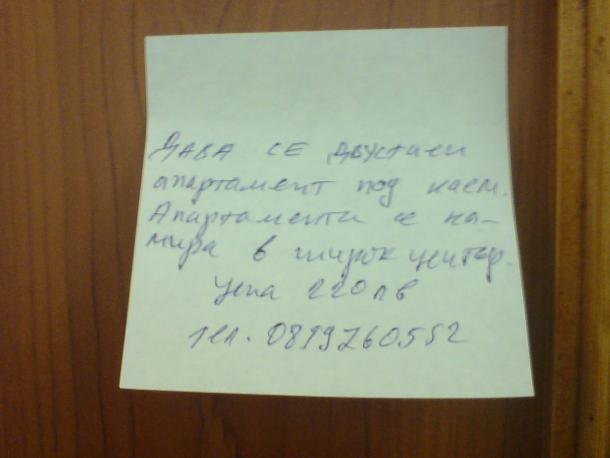 Дава се двустаен
апартамент под наем.
Апартамента се на-
мира в широк център.
Цена 220лв
тел. 0899260552